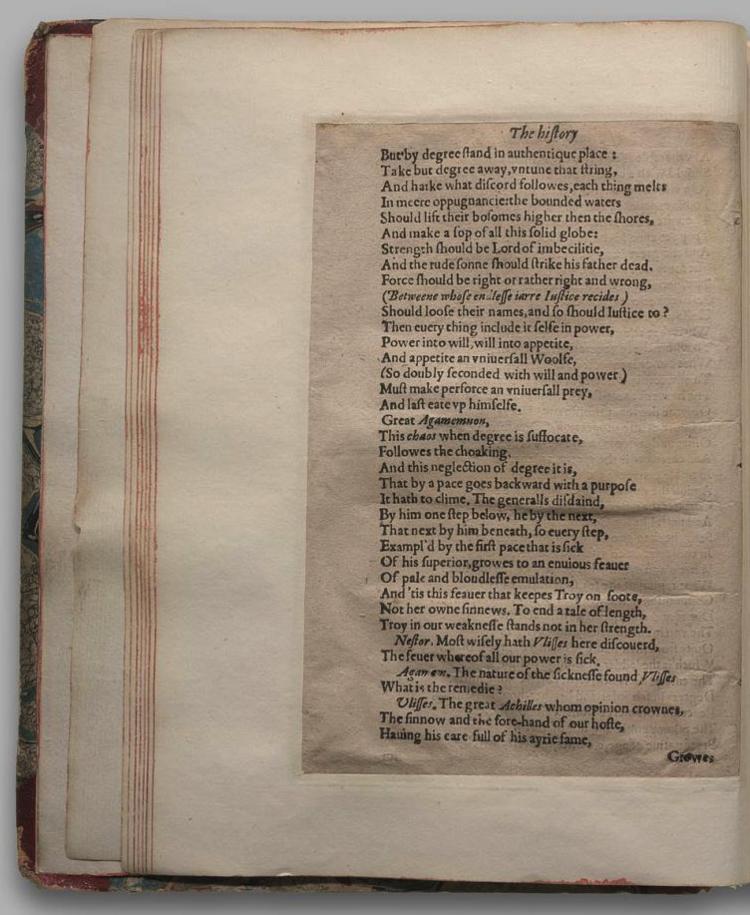 The hiſtory
But by degree ſtand in authentique place :
Take but degree away,vntune that ſtring,
And harke what diſcord followes,each thing melts
In meere oppugnancie:the bounded waters
Should lift their boſomes higher then the ſhores,
And make a ſop of all this ſolid globe:
Strength ſhould be Lord of imbecilitie,
And the rude ſonne ſhould ſtrike his father dead.
Force ſhould be right or rather right and wrong,
(Betweene whoſe endleſſe iarre Iuſtice recides )
Should looſe their names,and ſo ſhould Iuſtice to ?
Then euery thing include it ſelfe in power,
Power into will,will into appetite,
And appetite an vniuerſall Woolfe,
(So doubly ſeconded with will and power )
Muſt make perforce an vniuerſall prey,
And laſt eate vp himſelfe.
Great Agamemnon,
This chaos when degree is ſuffocate,
Followes the choaking.
And this neglection of degree it is,
That by a pace goes backward with a purpoſe
It hath to clime. The generalls diſdaind,
By him one ſtep below, he by the next,
That next by him beneath, ſo euery ſtep,
Exampl'd by the firſt pace that is ſick
Of his ſuperior,growes to an enuious feauer
Of pale and bloudleſſe emulation,
And 'tis this feauer that keepes Troy on foote,
Not her owne ſinnews. To end a tale of length,
Troy in our weakneſſe ſtands not in her ſtrength.
Neſtor. Moſt wiſely hath Vliſſes here diſcouerd,
The feuer whereof all our power is ſick.
Agamem. The nature of the ſickneſſe found Vliſſes
What is the remedie ?
Vliſſes. The great Achilles whom opinion crownes,
The ſinnow and the fore-hand of our hoſte,
Hauing his eare full of his ayrie fame,
Growes